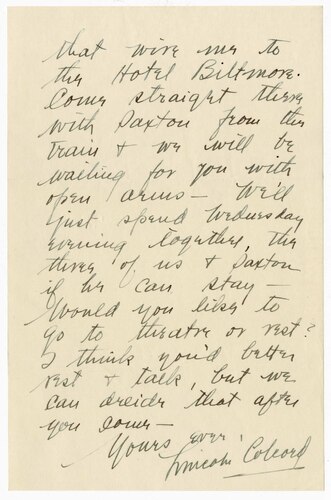 that wire me to
the Hotel Biltmore.
Come straight there
with Saxton from the
train & we will be
waiting for you with
open arms — We'll
just spend Wednesday
evening together, the
three of us & Saxton
if he can stay —
Would you like to
go to theatre or rest?
I think you'd better
rest & talk, but we
can decide that after
you come —
Yours ever,
Lincoln Colcord